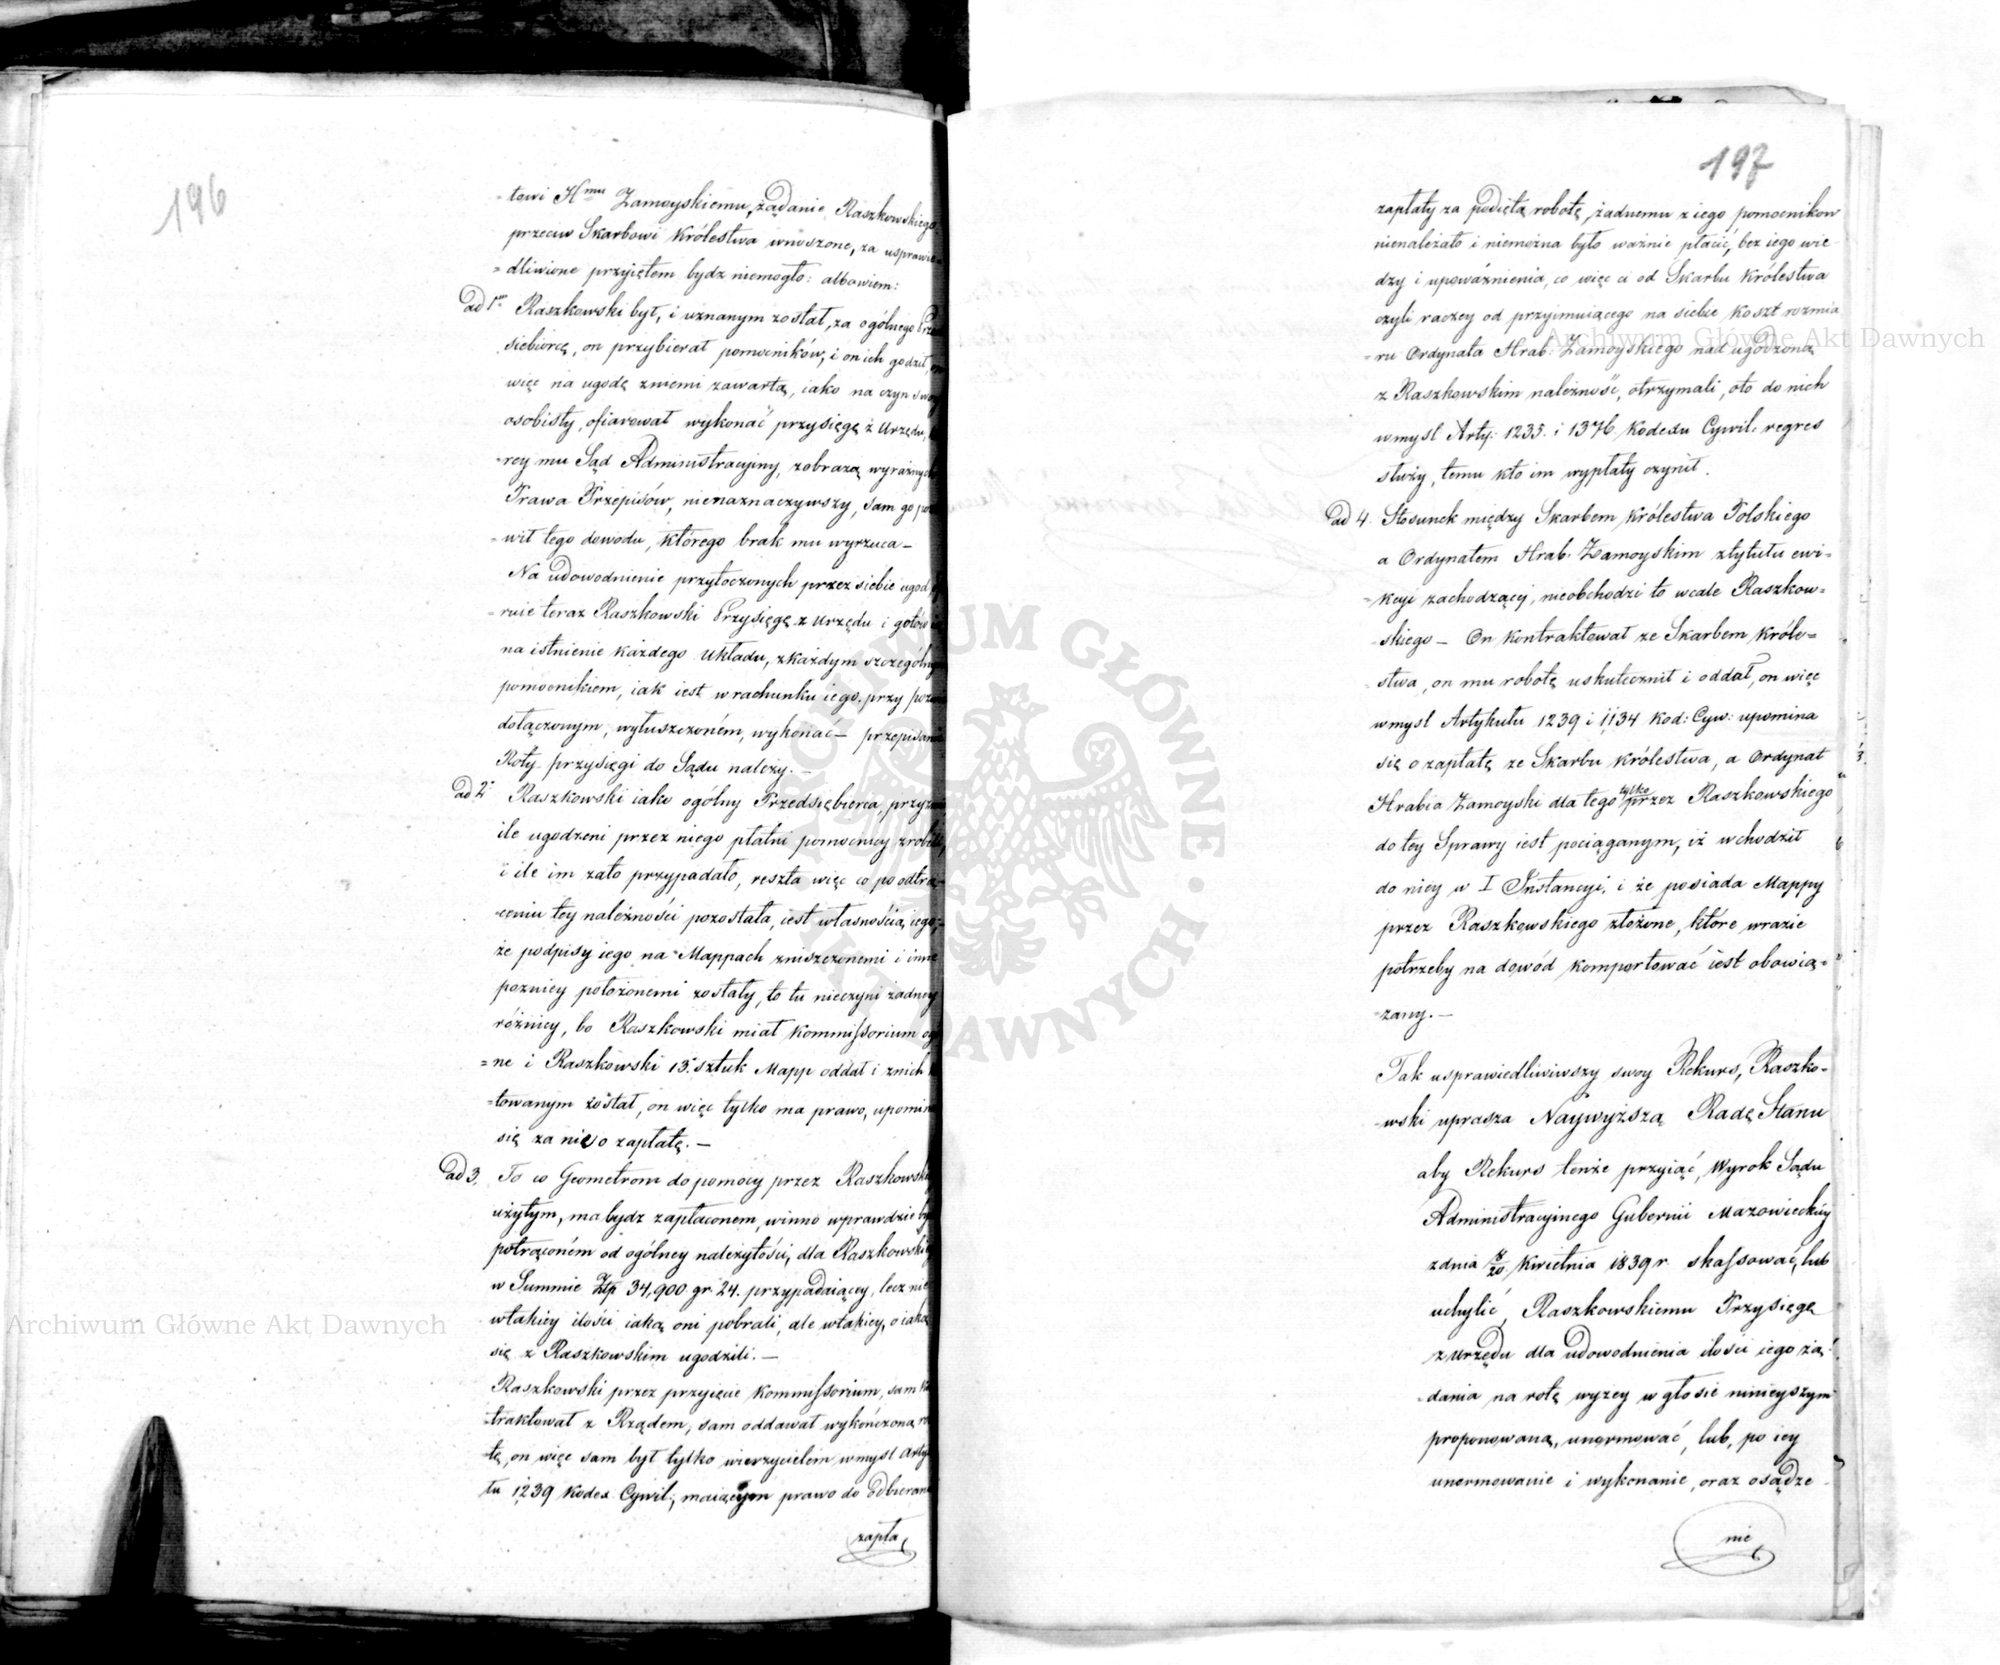 196
-towi Hmu Zamoyskiemu, żądanie Raszkowskiego
przeciw Skarbowi Królestwa wnoszone, za usprawie=
=dliwione przyiętem bydz niemogło: albowiem:
ad 1m Raszkowski był, i uznanym został, za ogólnego Prze
siebiorcę, on przybierał pomocników, i on ich godził,
więc na ugodę zniemi zawartą, iako na czyn swoy
osobisty, ofiarował wykonać przysięgę z Urzędu,
-rey mu Sąd Administracyiny, zobrazą wyraźnych
Prawa Przepisów, nienaznaczywszy, sam go po
-wił tego dowodu, którego brak mu wyrzuca –
Na udowodnienie przytoczonych przez siebie ugod
-ruie teraz Raszkowski Przysięgę z Urzędu i gotów
na istnienie każdego Układu, zkażdym szczególnym
pomocnikiem, iak iest w rachunku iego, przy
dołączonym, wyłuszczoném, wykonać – przepisanie
Roty przysięgi do Sądu należy. –
ad 2° Raszkowski iako ogólny Przedsiębierca, przyzna
ile ugodzeni przez niego płatni pomocnicy zrobili,
i ile im zato przypadało, reszta więc co po odtrą=
ceniu tey należności pozostała, iest własnością iego;
że podpisy iego na Mappach zniszczonemi i inne
pozniey położonemi zostały, to tu nieczyni żadney
różnicy, bo Raszkowski miał Kommissorium
=ne i Raszkowski 13. sztuk Mapp oddał i znich
-towanym został, on więc tylko ma prawo, upomin
się za nie o zapłatę. –
ad 3. To co Geometrom do pomocy przez Raszkowski
użytym, ma bydz zapłaconem, winno wprawdzie by
potrąconém od ogólney należytości, dla Raszkowskie
w Summie Złp 34,900 gr. 24. przypadaiącey, lecz nie
wtakiey ilości iaką oni pobrali, ale wtakiey, o iaką
się z Raszkowskim ugodzili. –
Raszkowski przez przyięcie Kommissorium, sam
-traktował z Rządem, sam oddawał wykończoną ro
-tę, on więc sam był tylko wierzycielem wmysl Arty
-tu 1239 Kodex Cywil:, maiącym prawo do odbierani
zapła
197
zapłaty za podiętą robotę, żadnemu z iego pomocnikow
nienależało i niemożna było ważnie płacić, bez iego wie-
dzy i upoważnienia, co więc ci od Skarbu Królestwa
czyli raczey od przyimuiącego na siebie koszt rozmia
-ru Ordynata Hrab: Zamoyskiego nad ugodzoną
z Raszkowskim należność, otrzymali, oto do nich
wmysl Arty: 1235. i 1376. Kodexu Cywil. regres
służy, temu kto im wypłaty czynił.
ad 4. Stosunek między Skarbem Królestwa Polskiego
a Ordynatem Hrab. Zamoyskim ztytułu ewi-
-kcyi zachodzący, nieobchodzi to wcale Raszkow=
-skiego – On kontraktował ze Skarbem Króle=
-stwa, on mu robotę uskutecznił i oddał, on więc
wmysl Artykułu 1239 i 1134 Kod: Cyw: upomina
się o zapłatę ze Skarbu Królestwa, a Ordynat
Hrabia Zamoyski dla tego tylko przez Raszkowskiego
do tey Sprawy iest pociąganym, iż wchodził
do niey w I Instancyi, i że posiada Mappy
przez Raszkowskiego złożone, które wrazie
potrzeby na dowód komportować iest obowią=
-zany. –
Tak usprawiedliwiwszy swoy Rekurs, Raszko-
-wski uprasza Naywyższą Radę Stanu
aby Rekurs tenże przyiąć, Wyrok Sądu
Administracyinego Gubernii Mazowieckiey
zdnia 8/20 Kwietnia 1839 r. skassować, lub
uchylić, Raszkowskiemu Przysięgę
z Urzędu dla udowodnienia ilości iego żą-
-dania na rotę wyżey w głosie ninieyszym
proponowaną, unormować, lub, po iey
unormowanie i wykonanie, oraz osądze-
nie
Archiwum Główne Akt Dawnych
Archiwum Główne Akt Dawnych
ARCHIWUM GŁÓWNE · AKT DAWNYCH ·